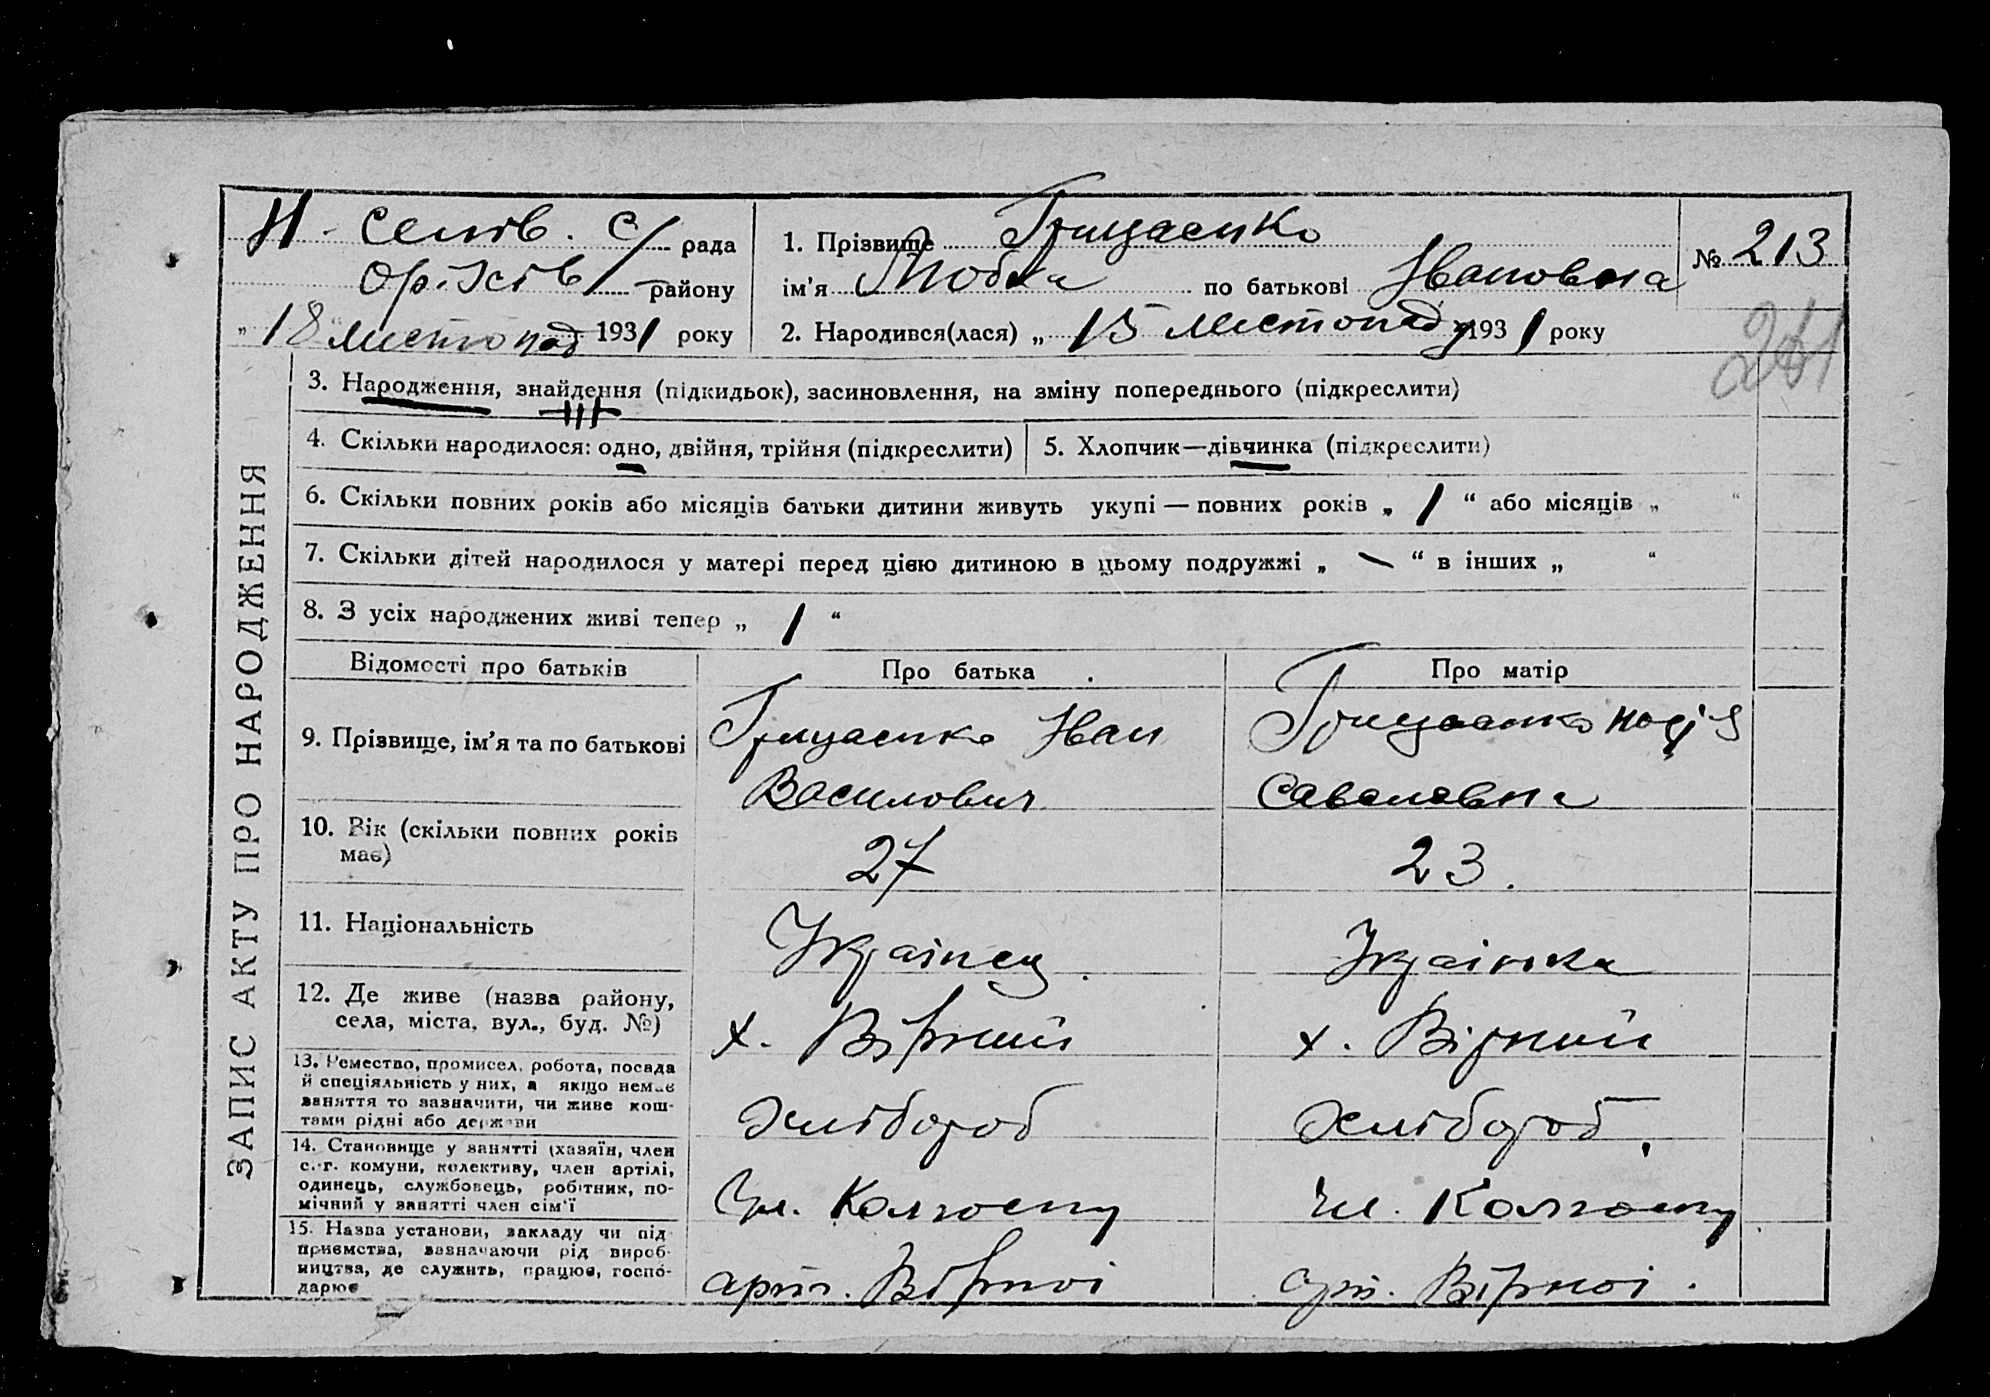 Н - Селів. С/ рада
Оріхів району
„ 18 “ листопад 1931 року
1. Прізвище Грицаенко
ім’я Любка по батькові Ивановна
№ 213
2. Народився(лася) „ 15 листопаду 1931 року
261
ЗАПИС АКТУ ПРО НАРОДЖЕННЯ
3. Народження, знайдення (підкидьок), засиновлення, на зміну попереднього (підкреслити)
4. Скільки народилося: одно, двійня, трійня (підкреслити)
5. Хлопчик—дівчинка (підкреслити)
6. Скільки повних років або місяців батьки дитини живуть укупі — повних років „ 1 “ або місяців „ “
7. Скільки дітей народилося у матері перед цією дитиною в цьому подружжі „ — “ в інших „ “
8. З усіх народжених живі тепер „ 1 “
Відомості про батьків
Про батька
Про матір
9. Прізвище, ім’я та по батькові
Грицаенко Иван
Василович
Грицаенко Надія
Савелевна
10. Вік (скільки повних років
має)
27
23.
11. Національність
Українец
Українка
12. Де живе (назва району,
села, міста, вул., буд. №)
х. Вірний
х. Вірний
13. Ремество, промисел, робота, посада
й спеціяльність у них, а якщо немає
заняття то зазначити, чи живе кош-
тами рідні або держави
Хлібороб
Хлібороб.
14. Становище у занятті (хазяїн, член
с.-г. комуни, колективу, член артілі,
одинець, службовець, робітник, по-
мічний у занятті член сім’ї
Чл. Колгоспу
Чл. Колгоспу
15. Назва установи, закладу чи під-
приємства, зазначаючи рід вироб-
ництва, де служить, працює, госпо-
дарює
арт. Вірної
арт. Вірної.